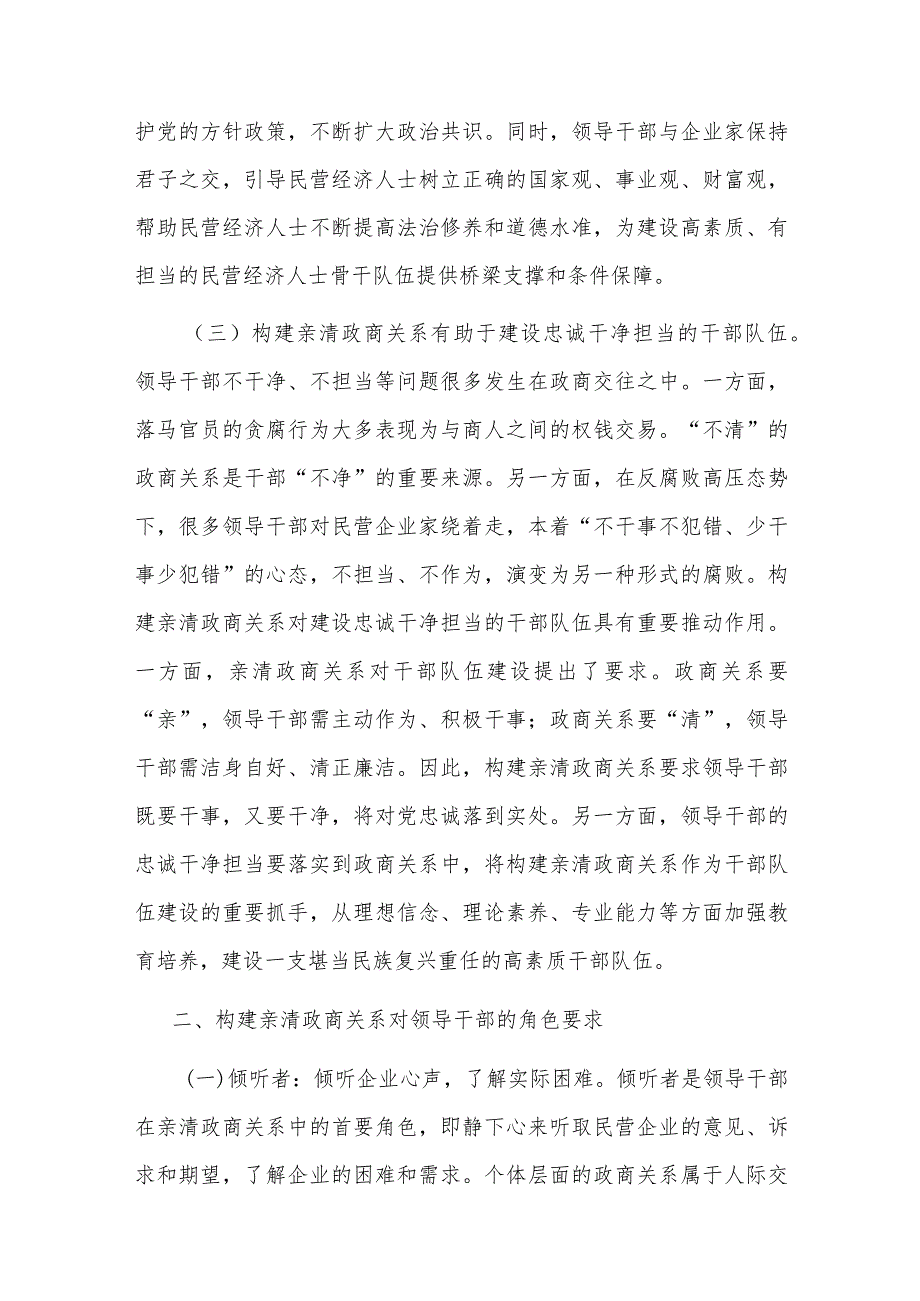 护党的方针政策，不断扩大政治共识。同时，领导干部与企业家保持
君子之交，引导民营经济人士树立正确的国家观、事业观、财富观，
帮助民营经济人士不断提高法治修养和道德水准，为建设高素质、有
担当的民营经济人士骨干队伍提供桥梁支撑和条件保障。
（三）构建亲清政商关系有助于建设忠诚干净担当的干部队伍。
领导干部不干净、不担当等问题很多发生在政商交往之中。一方面，
落马官员的贪腐行为大多表现为与商人之间的权钱交易。“不清”的
政商关系是干部“不净”的重要来源。另一方面，在反腐败高压态势
下，很多领导干部对民营企业家绕着走，本着“不干事不犯错、少干
事少犯错”的心态，不担当、不作为，演变为另一种形式的腐败。构
建亲清政商关系对建设忠诚干净担当的干部队伍具有重要推动作用。
一方面，亲清政商关系对干部队伍建设提出了要求。政商关系要
“亲”，领导干部需主动作为、积极干事；政商关系要“清”，领导
干部需洁身自好、清正廉洁。因此，构建亲清政商关系要求领导干部
既要干事，又要干净，将对党忠诚落到实处。另一方面，领导干部的
忠诚干净担当要落实到政商关系中，将构建亲清政商关系作为干部队
伍建设的重要抓手，从理想信念、理论素养、专业能力等方面加强教
育培养，建设一支堪当民族复兴重任的高素质干部队伍。
二、构建亲清政商关系对领导干部的角色要求
(一)倾听者：倾听企业心声，了解实际困难。倾听者是领导干部
在亲清政商关系中的首要角色，即静下心来听取民营企业的意见、诉
求和期望，了解企业的困难和需求。个体层面的政商关系属于人际交